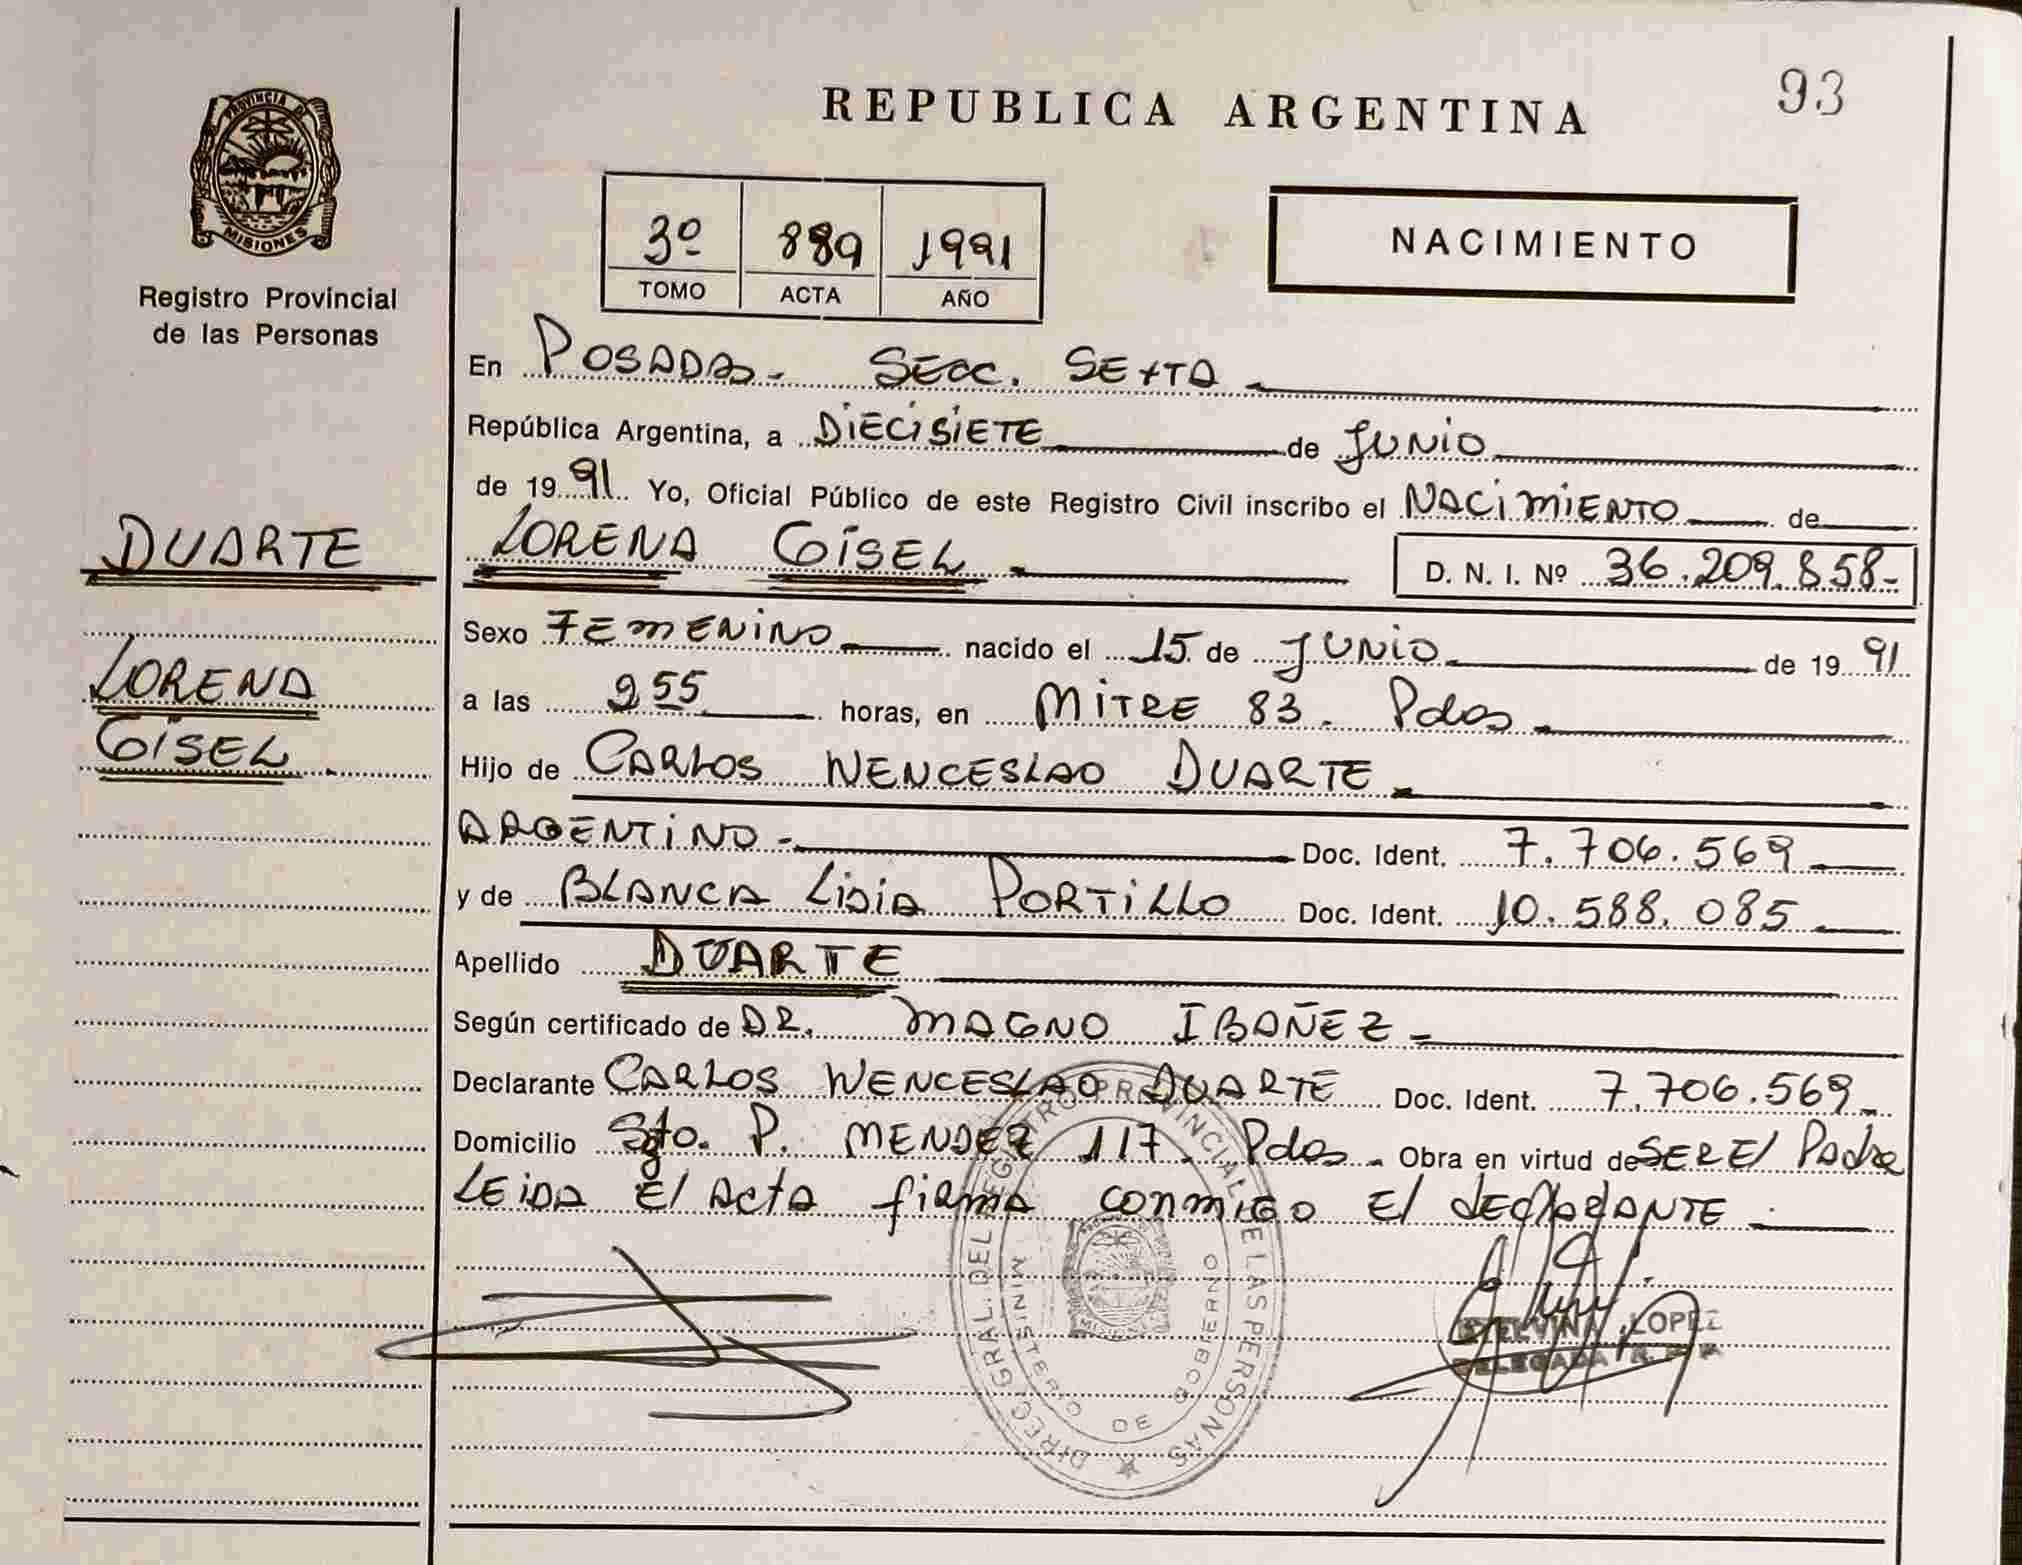 93
REPUBLICA ARGENTINA
PROVINCIA DE
MISIONES
Registro Provincial
de las Personas
3º 889 1991
TOMO ACTA AÑO
NACIMIENTO
En POSADAS - SECC. SEXTA
República Argentina, a DIECISIETE de JUNIO
de 1991 Yo, Oficial Público de este Registro Civil inscribo el NACIMIENTO de
DUARTE
LORENA GISEL D. N. I. Nº 36.209.858-
Sexo FEMENINO nacido el 15 de JUNIO de 1991
LORENA
GISEL
a las 9 55 horas, en MITRE 83. Pdas
Hijo de CARLOS WENCESLAO DUARTE
ARGENTINO - Doc. Ident. 7.706.569
y de BLANCA LIDIA PORTILLO Doc. Ident. 10.588.085
Apellido DUARTE
Según certificado de DR. MAGNO IBAÑEZ
Declarante CARLOS WENCESLAO DUARTE Doc. Ident. 7.706.569
Domicilio Sgto. P. MENDEZ 117 Pdas - Obra en virtud de SER El Padre
LEIDA El Acta firma conmigo El declarante
DIREC. GRAL. DEL REGISTRO PROVINCIAL DE LAS PERSONAS
MINISTERIO DE GOBIERNO
MISIONES
LOPEZ
DELEGADA